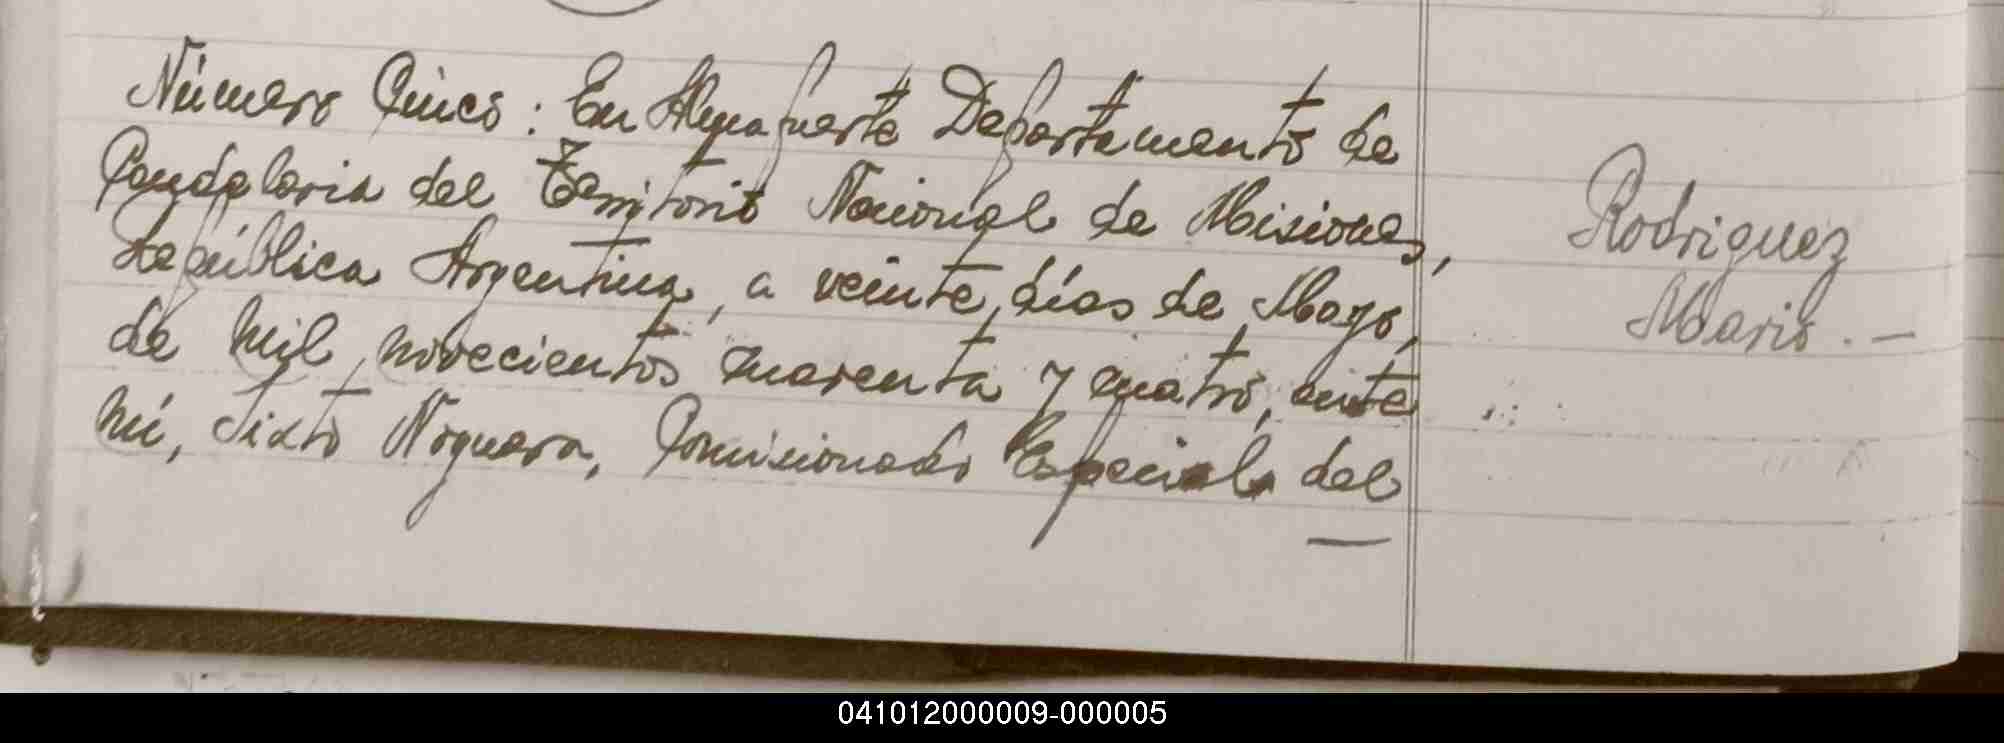 Número Cinco: En Almafuerte Departamento de
Candelaria del Territorio Nacional de Misiones,
República Argentina, a veinte días de Mayo,
de mil novecientos cuarenta y cuatro, ante
mí, Sixto Noguera, Comisionado Especial del
Rodriguez
Mario.—
041012000009-000005